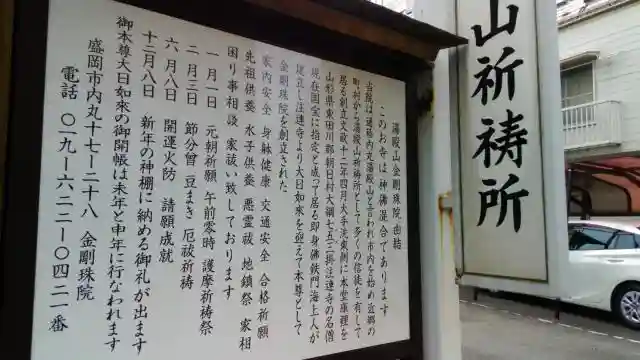 湯殿山金剛珠院由結
このお寺は神佛混合であります
当院は通称内丸湯殿山と言われ市内を始め近郷の
町、村から湯殿山祈祷所として多くの信徒を有して
居る創立文政十二年四月大手先東側に本堂庫理を
山形県東田川郡朝日村大綱七五三掛注連寺の名僧
現在国宝に指定と成って居る即身佛鉄門海上人が
建立し注連寺より大日如來を迎えて本尊として
金剛珠院を創立された
家内安全 身体健康 交通安全 合格祈願
先祖供養 水子供養 悪霊祓 地鎮祭 家相
困り事相談 家祓い致しております
一月一日 元朝祈願 午前零時 護摩祈祷祭
二月三日 節分曾 豆まき 厄祓祈祷
六月八日 開運火防 請願成就
十二月八日 新年の神棚に納める御礼が出ます
御本尊大日如來の御開帳は未年と申年に行なわれます
盛岡市内丸十七-二十八 金剛珠院
電話 〇一九-六二二-〇四二一番
山祈祷所